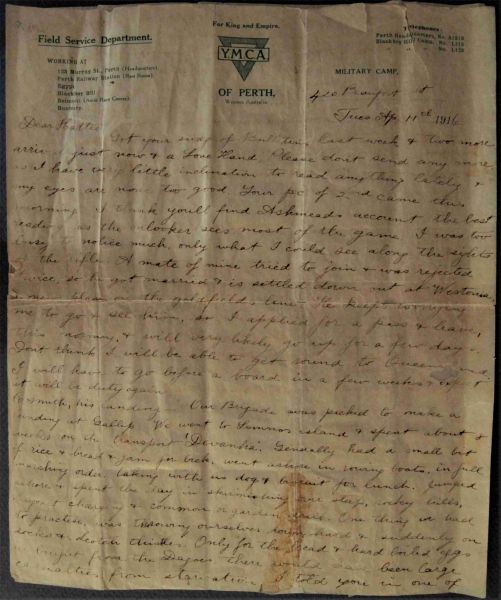 For King and Empire.
Field Service Department.
Telephones:
Perth Headquarters, No. A1219
Blackboy Hill Camp, No. L118
No. L120
WORKING AT
Perth Railway Station (Rest Room)
Egypt
Blackboy Hill
Belmont (Auto Race Course)
Bunbury.
YMCA
OF PERTH,
Western Australia
MILITARY CAMP,
420 Beaufort St
Tues Ap 11th 1916
Dear Hattie
Got your swag of Bulletins last week & two more
arrived just now & a Lone Hand. Please dont send any more
as I have very little inclination to read anything lately &
my eyes are none too good. Your pc of 2nd came this
morning. I think youll find Ashmeads account the best
reading as the onlooker sees most of the game. I was too
busy to notice much, only what I could see along the sights
of the rifle. A mate of mine tried to join & was rejected
twice, so he got married & is settled down out at Westonia
a new place on the goldfields line. He keeps worrying
me to go & see him, so I applied for a pass & leave,
this morning, & will very likely go up for a few days.
Dont think I will be able to get round to
I will have to go before a board in a few weeks & expect
it will be duty again
Smith, his landing. Our Brigade was picked to make a
landing at Gallip. We went to Lemnos island & spent about
weeks on the transport 'Devanha'. Generally had a small bit
of rice & bread & jam for brek, went ashore in rowing boats, in full
marching order taking with us dog & biscuit for lunch. Jumped
ashore & spent the day in skirmishing over steep, rocky hills,
bayonet charging & common or garden drill. One thing we had
to practise, was throwing ourselves down hard & suddenly on
rocks & scotch thistles. Only for the bread & hard boiled eggs
bought from the Dagoes there would have been large
casualties from starvation. I told you in one of